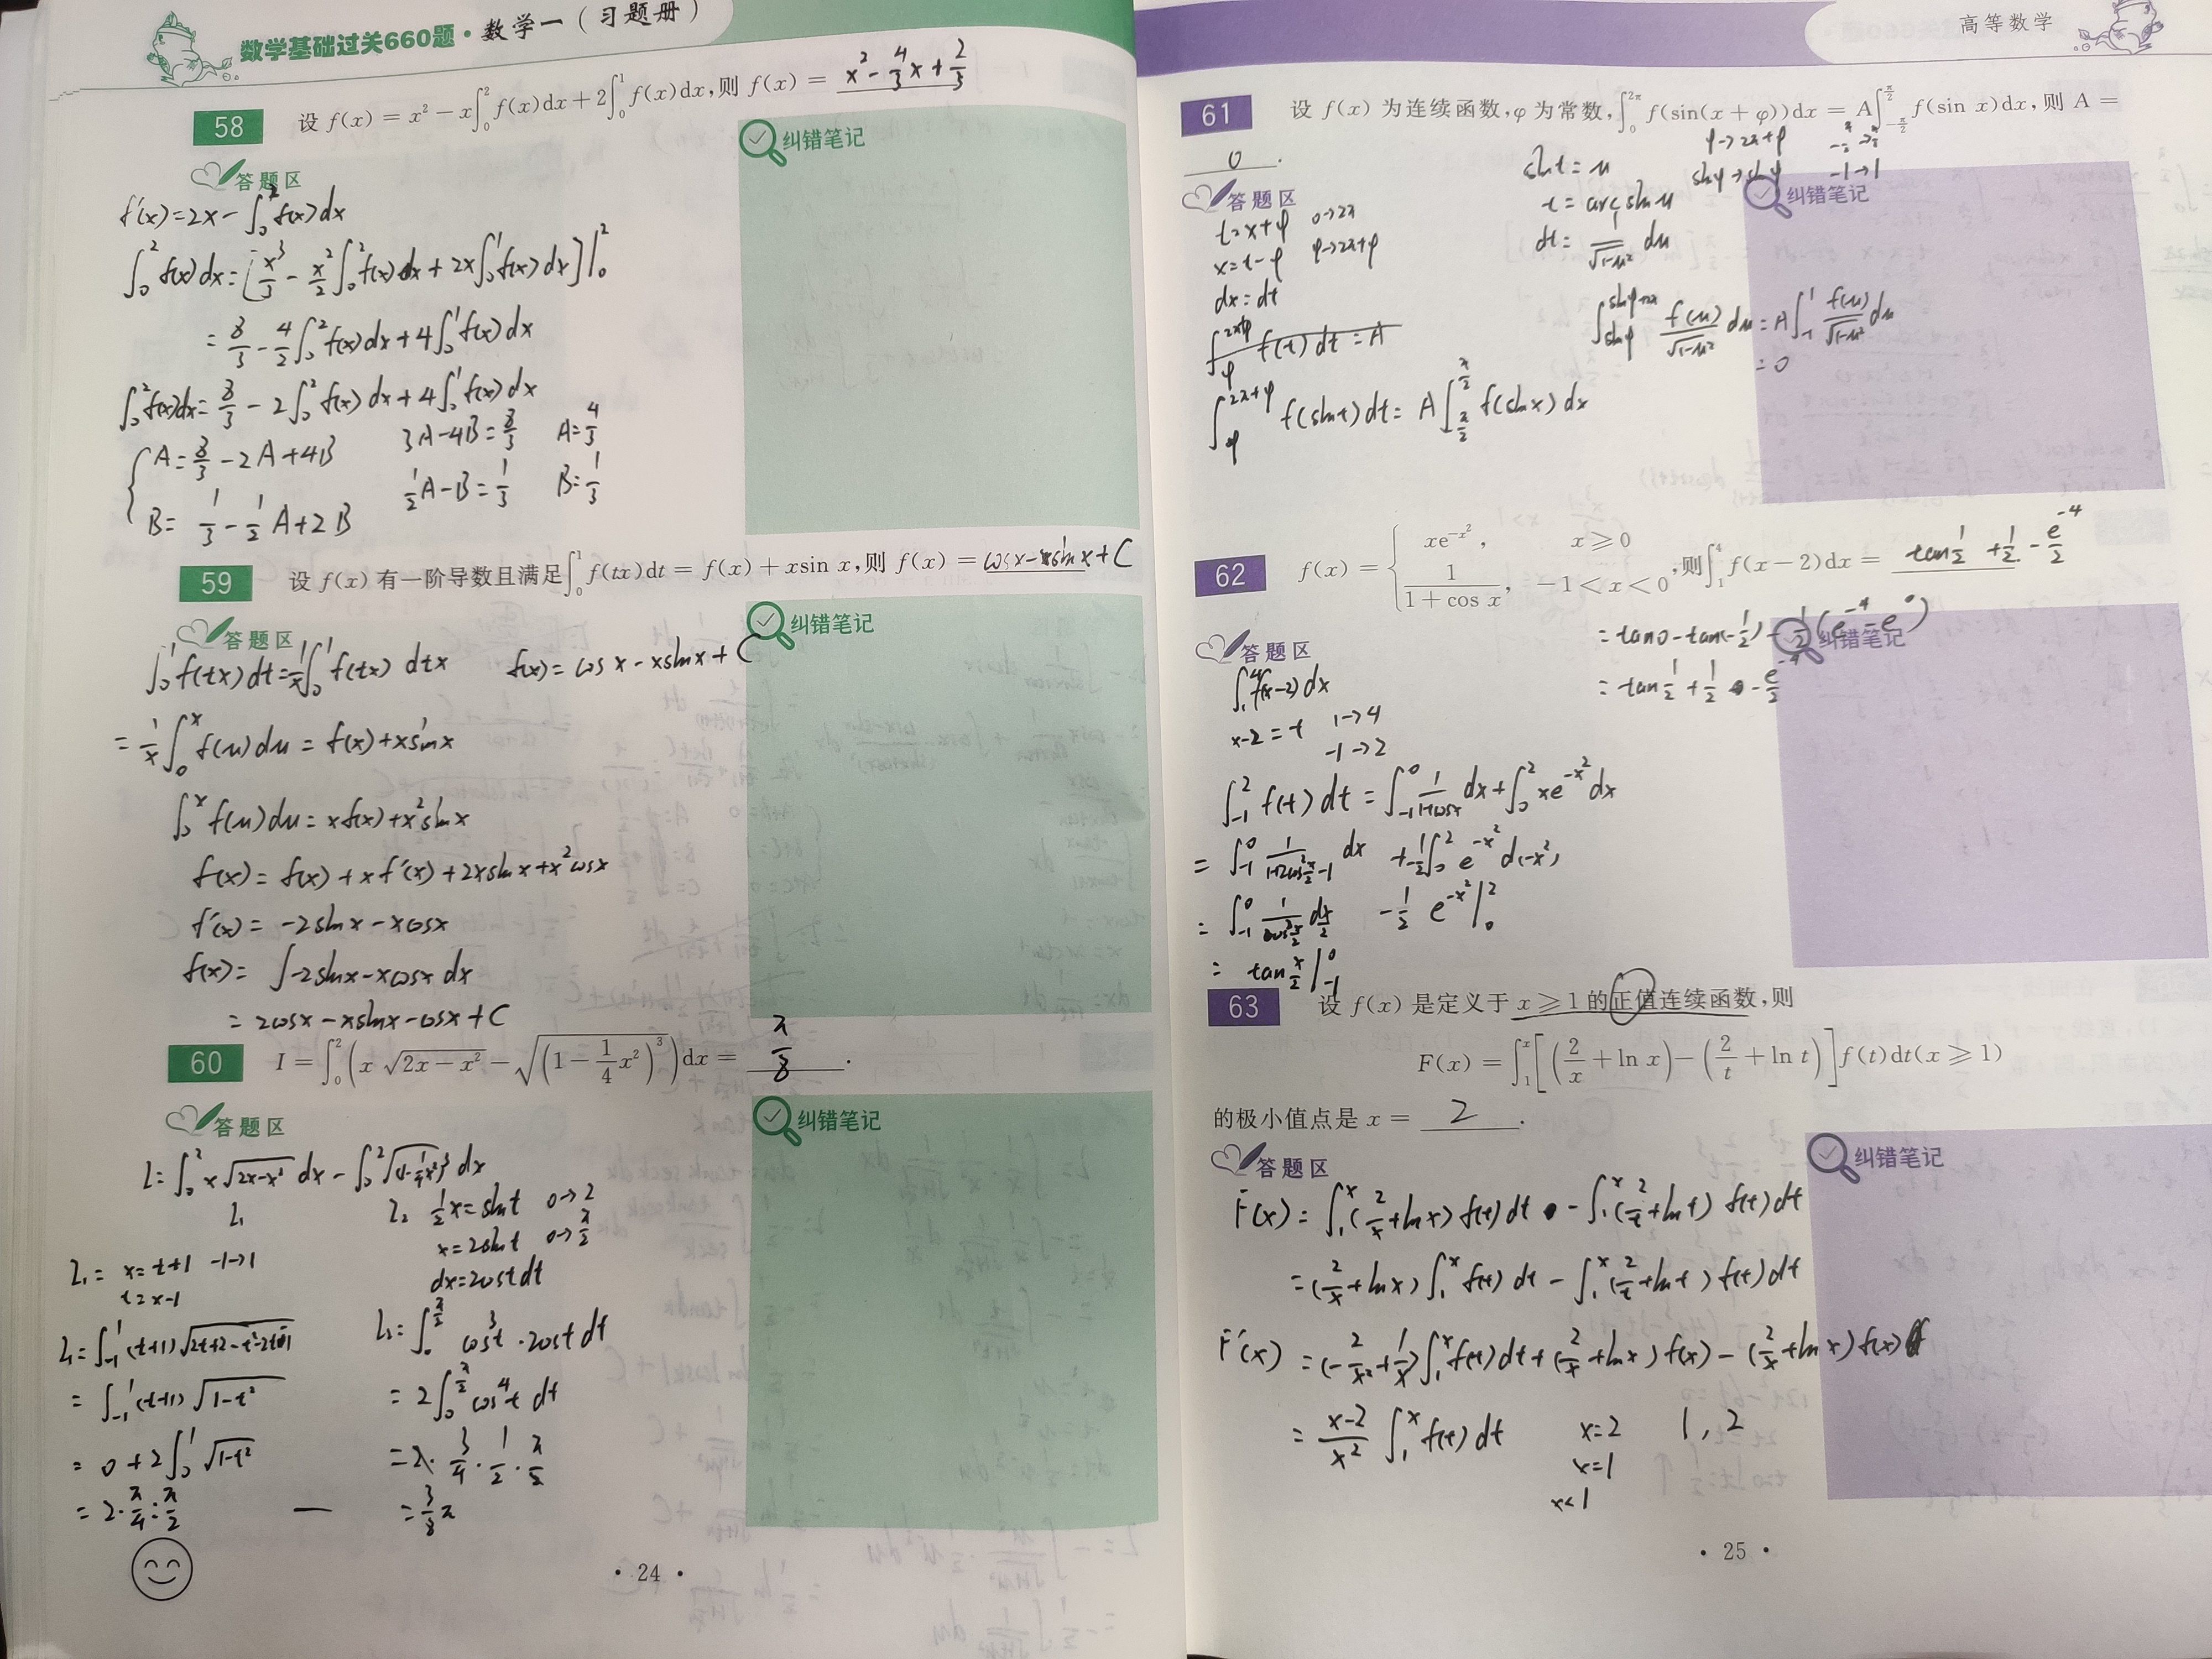 数学基础过关660题·数学一(习题册)
58 设 f(x) = x² − x∫₀² f(x)dx + 2∫₀¹ f(x)dx, 则 f(x) = x² − 4/3 x + 2/3
答题区
纠错笔记
f'(x) = 2x − ∫₀² f(x)dx
∫₀² f(x)dx = (x³/3 − x²/2 ∫₀² f(x)dx + 2x∫₀¹ f(x)dx)|₀²
= 8/3 − 4/2 ∫₀² f(x)dx + 4∫₀¹ f(x)dx
∫₀² f(x)dx = 8/3 − 2∫₀² f(x)dx + 4∫₀¹ f(x)dx
{ A = 8/3 − 2A + 4B
3A − 4B = 8/3
A = 4/3
B = 1/3 − 1/2 A + 2B
1/2 A − B = 1/3
B = 1/3
59 设 f(x) 有一阶导数且满足 ∫₀¹ f(tx)dt = f(x) + xsin x, 则 f(x) = cosx − xsinx + C
答题区
纠错笔记
∫₀¹ f(tx)dt = 1/x ∫₀¹ f(tx) dtx
f(x) = cosx − xsinx + C
= 1/x ∫₀ˣ f(u)du = f(x) + xsinx
∫₀ˣ f(u)du = xf(x) + x²sinx
f(x) = f(x) + xf'(x) + 2xsinx + x²cosx
f'(x) = −2sinx − xcosx
f(x) = ∫ −2sinx − xcosx dx
= 2cosx − xsinx − cosx + C
60 I = ∫₀² (x√(2x − x²) − √((1 − 1/4 x²)³))dx = π/8 .
答题区
纠错笔记
I = ∫₀² x√(2x−x²) dx − ∫₀² √((1−1/4x²)³) dx
I₁
I₂ 1/2 x = sint 0→2
x = 2sint 0→π/2
dx = 2costdt
I₁ = x = t+1 −1→1
t = x−1
I₁ = ∫₋₁¹ (t+1)√(2t+2−t²−2t−1)
= ∫₋₁¹ (t+1)√(1−t²)
= 0 + 2∫₀¹ √(1−t²)
= 2·π/4 = π/2
I₂ = ∫₀^(π/2) cos³t·2cost dt
= 2∫₀^(π/2) cos⁴t dt
= 2·3/4·1/2·π/2
= 3/8 π
—
·24·
高等数学
61 设 f(x) 为连续函数, φ 为常数, ∫₀^(2π) f(sin(x + φ))dx = A∫_(−π/2)^(π/2) f(sin x)dx, 则 A =
0 .
答题区
纠错笔记
t = x+φ 0→2π
x = t−φ φ→2π+φ
dx = dt
∫_φ^(2π+φ) f(t)dt = A
∫_φ^(2π+φ) f(sint)dt = A∫_(−π/2)^(π/2) f(sinx)dx
sint = u
t = arcsinu
dt = 1/√(1−u²) du
φ→2π+φ
sinφ→sinφ
−π/2→π/2
−1→1
f(u)/√(1−u²) du = A∫₋₁¹ f(u)/√(1−u²) du
= 0
62 f(x) = { xe^(−x²), x ⩾ 0
1/(1 + cos x), −1 < x < 0
, 则 ∫₁⁴ f(x − 2)dx = tan1/2 + 1/2 − e⁻⁴/2
答题区
纠错笔记
∫₁⁴ f(x−2)dx
x−2 = t 1→4
−1→2
∫₋₁² f(t)dt = ∫₋₁⁰ 1/(1+cosx) dx + ∫₀² xe^(−x²) dx
= ∫₋₁⁰ 1/(1+2cos²x/2−1) dx + −1/2 ∫₀² e^(−x²) d(−x²)
= ∫₋₁⁰ 1/(cos²x/2) dx/2 − 1/2 e^(−x²)|₀²
= tan x/2 |₋₁⁰
= tan0 − tan(−1/2) + −1/2(e⁻⁴ − e⁰)
= tan1/2 + 1/2 − e⁻⁴/2
63 设 f(x) 是定义于 x ⩾ 1 的正值连续函数, 则
F(x) = ∫₁ˣ [(2/x + ln x) − (2/t + ln t)] f(t)dt (x ⩾ 1)
的极小值点是 x = 2 .
答题区
纠错笔记
F(x) = ∫₁ˣ (2/x + lnx) f(t)dt − ∫₁ˣ (2/t + lnt) f(t)dt
= (2/x + lnx) ∫₁ˣ f(t)dt − ∫₁ˣ (2/t + lnt) f(t)dt
F'(x) = (−2/x² + 1/x)∫₁ˣ f(t)dt + (2/x + lnx) f(x) − (2/x + lnx) f(x)
= (x−2)/x² ∫₁ˣ f(t)dt
x = 2
x = 1
x<1
1, 2
·25·